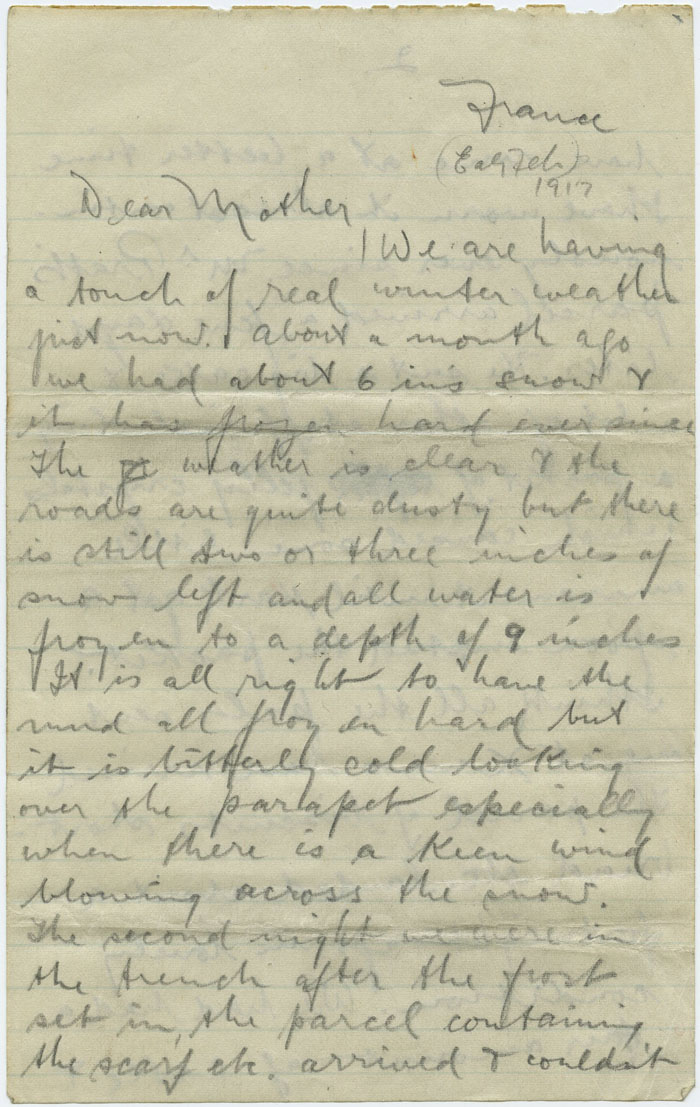 France
(Early Feb)
1917
Dear Mother
We are having
a touch of real winter weather
just now. About a month ago
we had about 6 ins snow &
it has frozen hard ever since
The weather is clear & the
roads are quite dusty but there
is still two or three inches of
snow left and all water is
frozen to a depth of 9 inches
It is all right to have the
mud all frozen hard but
it is bitterly cold looking
over the parapet especially
when there is a keen wind
blowing across the snow.
The second night we were in
the trench after the frost
set in, the parcel containing
the scarf etc. arrived & couldn't